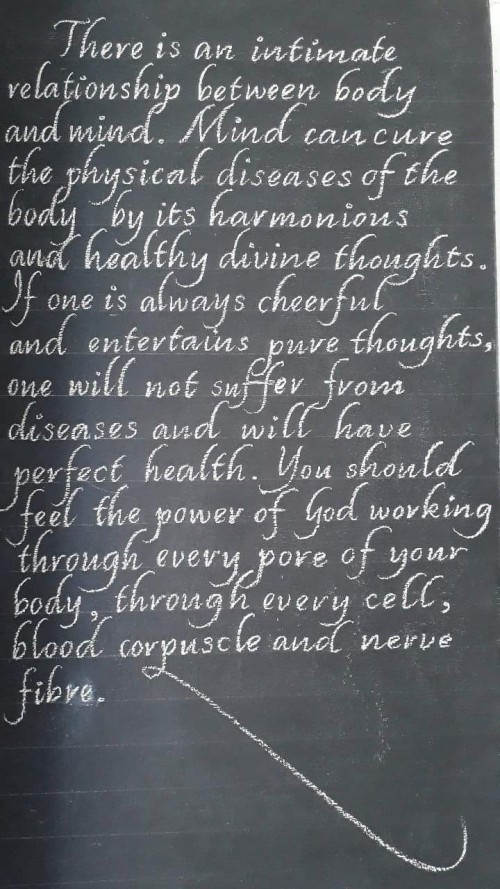 There is an intimate
relationship between body
and mind. Mind can cure
the physical diseases of the
body by its harmonious
and healthy divine thoughts.
If one is always cheerful
and entertains pure thoughts,
one will not suffer from
diseases and will have
perfect health. You should
feel the power of God working
through every pore of your
body, through every cell,
blood corpuscle and nerve
fibre.